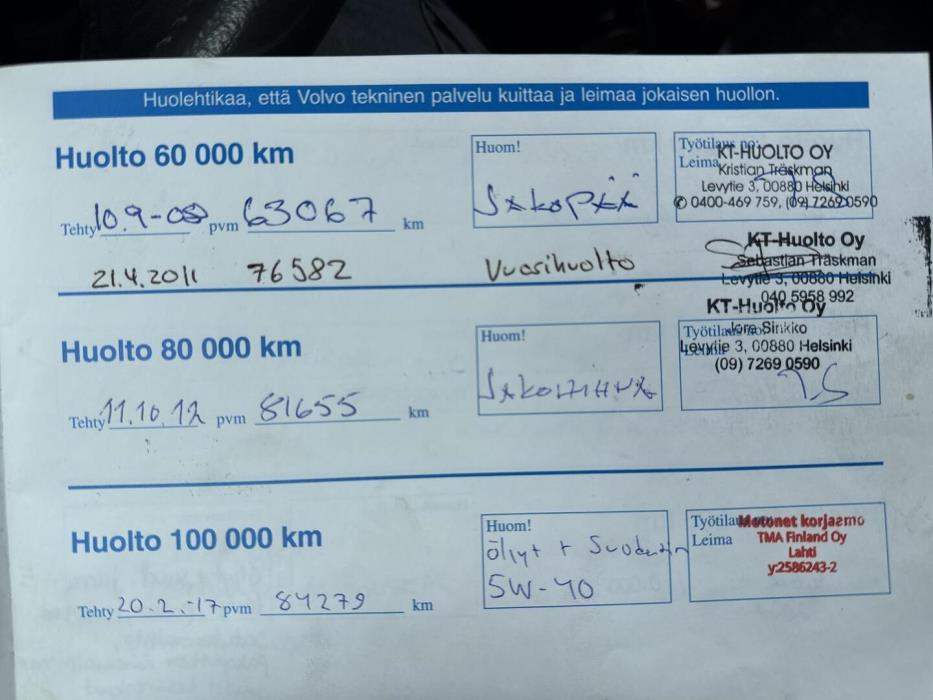 Huolehtikaa, että Volvo tekninen palvelu kuittaa ja leimaa jokaisen huollon.
Huolto 60 000 km
Huom!
Työtilaus no:
Leima
KT-HUOLTO OY
Kristian Träskman
Levytie 3, 00880 Helsinki
✆ 0400-469 759, (09) 7269 0590
Tehty 10.9-08 pvm 63067 km
21.4.2011 76582 Vuosihuolto
KT-Huolto Oy
Sebastian Träskman
Levytie 3, 00880 Helsinki
040 5958 992
Huolto 80 000 km
Huom!
KT-Huolto Oy
Jore Sinkko
Levytie 3, 00880 Helsinki
(09) 7269 0590
Tehty 11.10.12 pvm 81655 km
JS
Huolto 100 000 km
Huom!
öljyt + Suodatin
5W-40
Leima
Motonet korjaamo
TMA Finland Oy
Lahti
y:2586243-2
Tehty 20.2.-17 pvm 84279 km